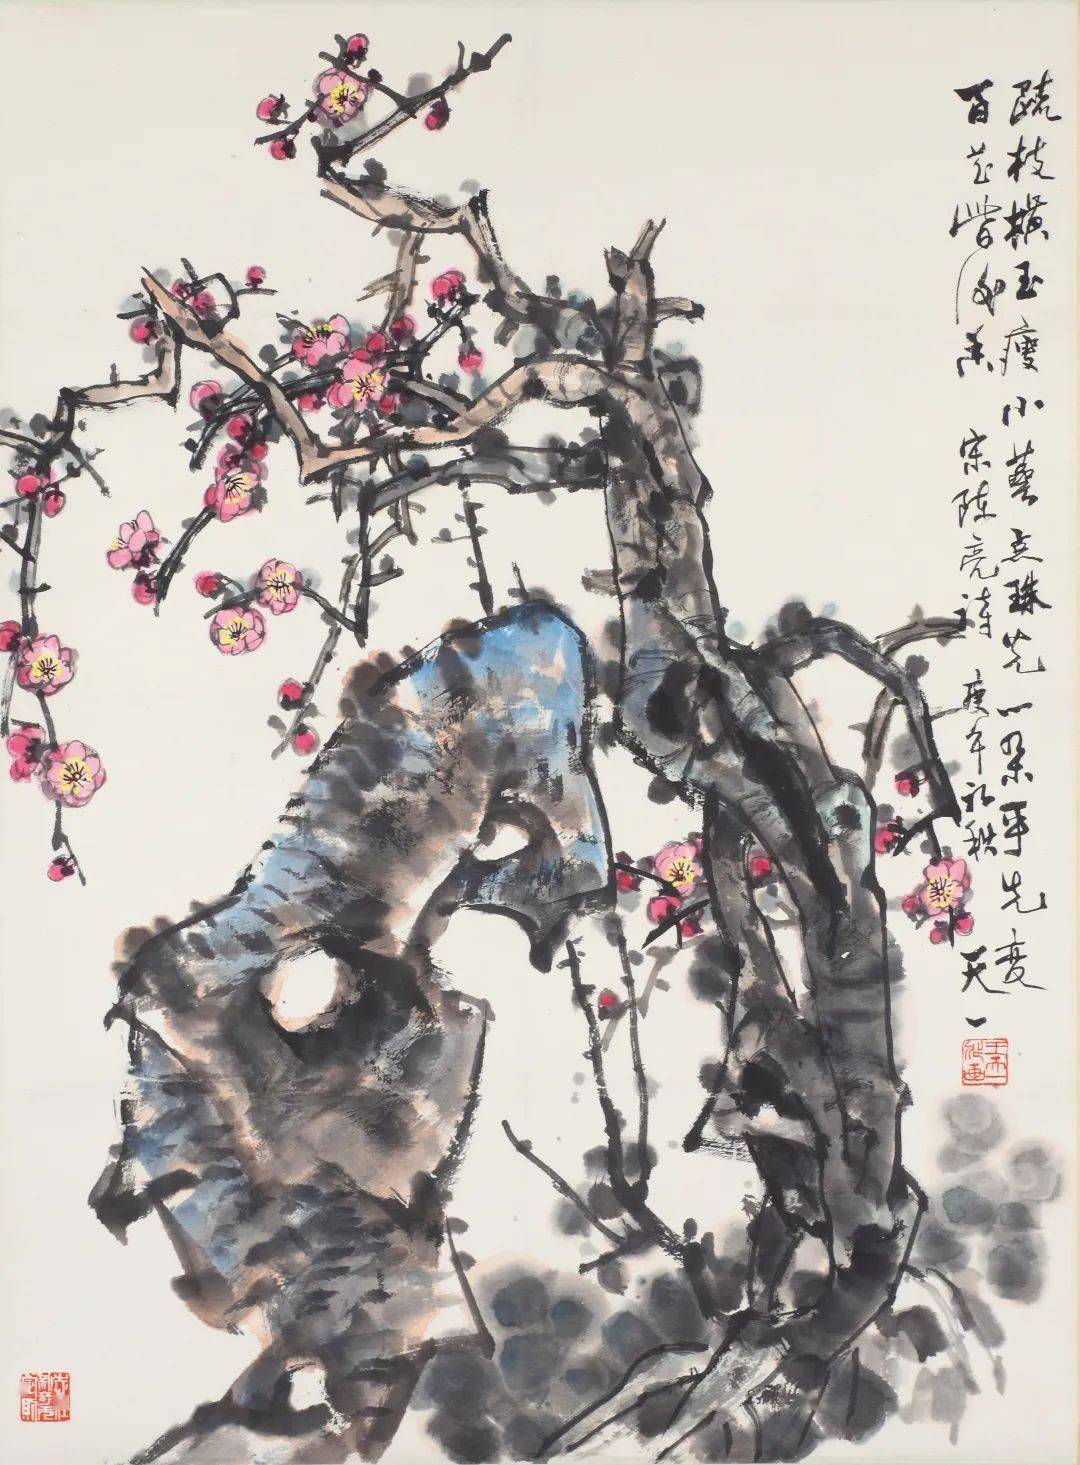 疏枝横玉瘦小萼点珠光一朵争先变
百花皆后香 宋陈亮诗 庚午初秋 天一